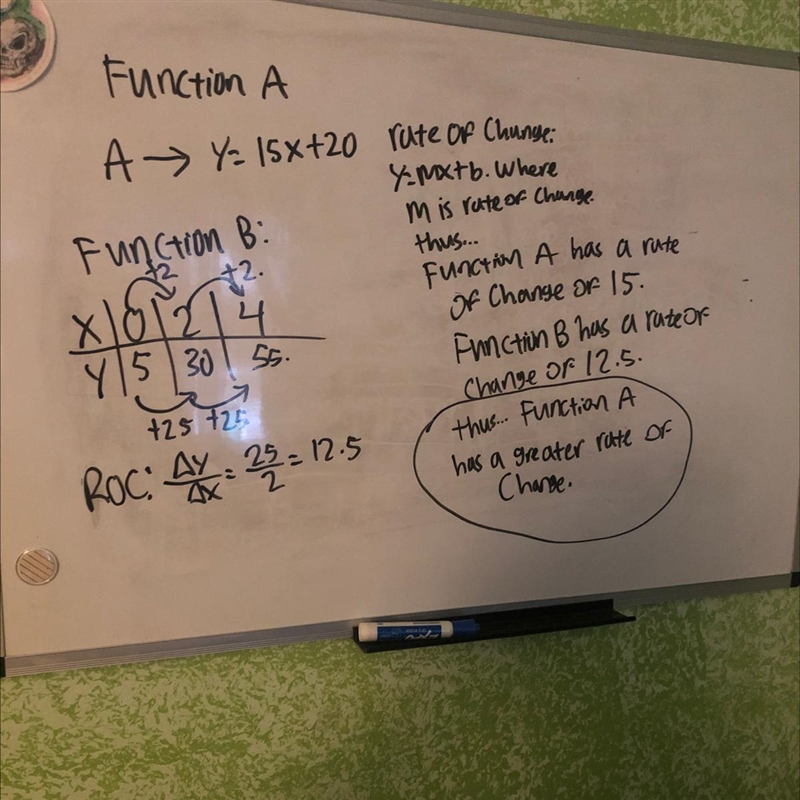 Function A
A → y = 15x+20
Function B:
+2 +2.
X | 0 | 2 | 4
Y | 5 | 30 | 55.
+25 +25
ROC: Δy/Δx = 25/2 = 12.5
rate of Change:
y=mx+b. Where
M is rate of Change.
thus...
Function A has a rate
of Change of 15.
Function B has a rate of
Change of 12.5.
thus... Function A
has a greater rate of
Change.